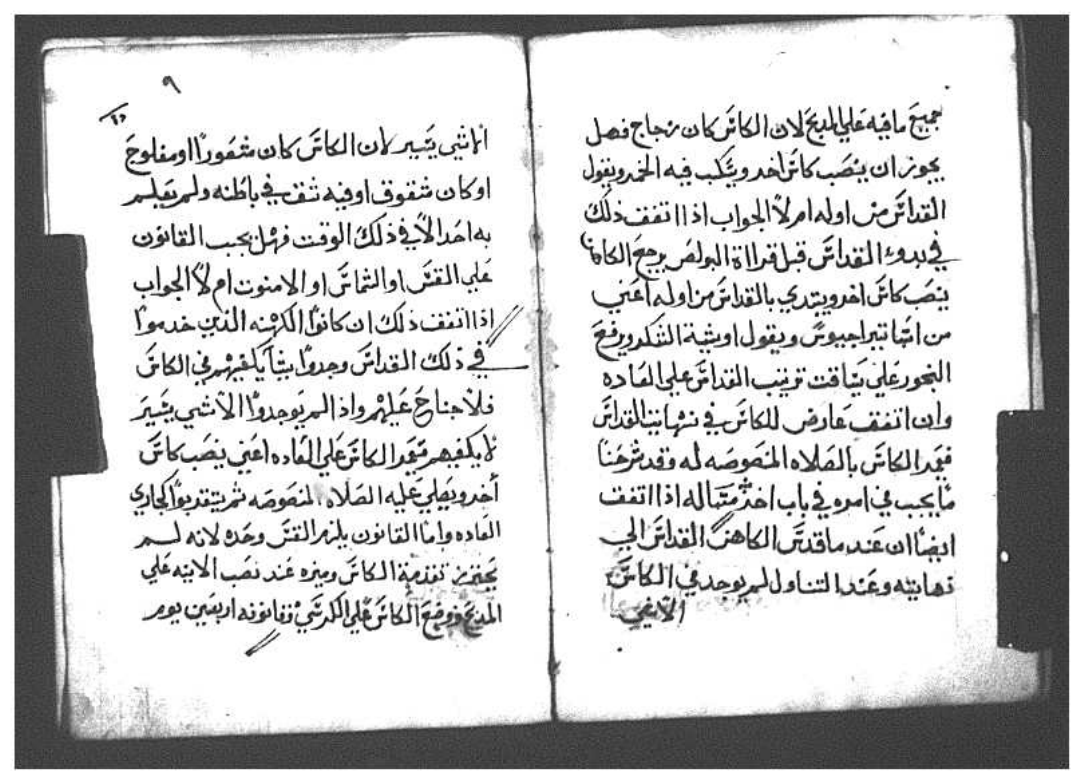 جميع ما فيه علي المدبح لان الكاس كان زجاج فصل
يجوز ان ينصب كاس اخر ويسكب فيه الخمر ويقول
القداس من اوله ام لا الجواب اذا اتفف ذلك
في بدوء القداس قبل قراة البولص يرجع الكاهن
ينصب كاس اخر ويبتدي بالقداس من اوله اعني
من ويقول اوشية الشكر ويرفع
البخور علي ترتيب القداس علي العاده
وان اتفف عارض للكاس في نهايتة القداس
فيمر الكاس بالصلاه المنصوصه له وقد شرحنا
ما يجب في امره في باب اخر مسَاله اذا اتفف
ايضا ان عند ما قدس الكاهن القداس الي
نهايته وعند التناول لم يوجد في الكاس
الا شي
٩
الا شي يسير لان الكاس كان مشعورا او مفلوج
او كان مشقوق او فيه ثقب في باطنه ولم يعلم
به احد الا في ذلك الوقت فهل يجب القانون
علي القس او الشماس او الامنوت ام لا الجواب
اذا اتفف ذلك ان كانوا الكهنه الذين خدموا
في ذلك القداس وجدوا شيا يكفيهم في الكاس
فلا جناح عليهم واذا لم يوجدوا الا شي يسير
لا يكفيهم فيمر الكاس علي العاده اعني ينصب كاس
أخر ويصلي عليه الصلاه المنصوصه ثم يتقربوا كجاري
العاده واما القانون يلزم القس وحده لانه لم
يحترز تقدمة الكاس وميزه عند نصب الانيه علي
المدبح ووضع الكاس علي الكرسي وقانونه اربعين يوم